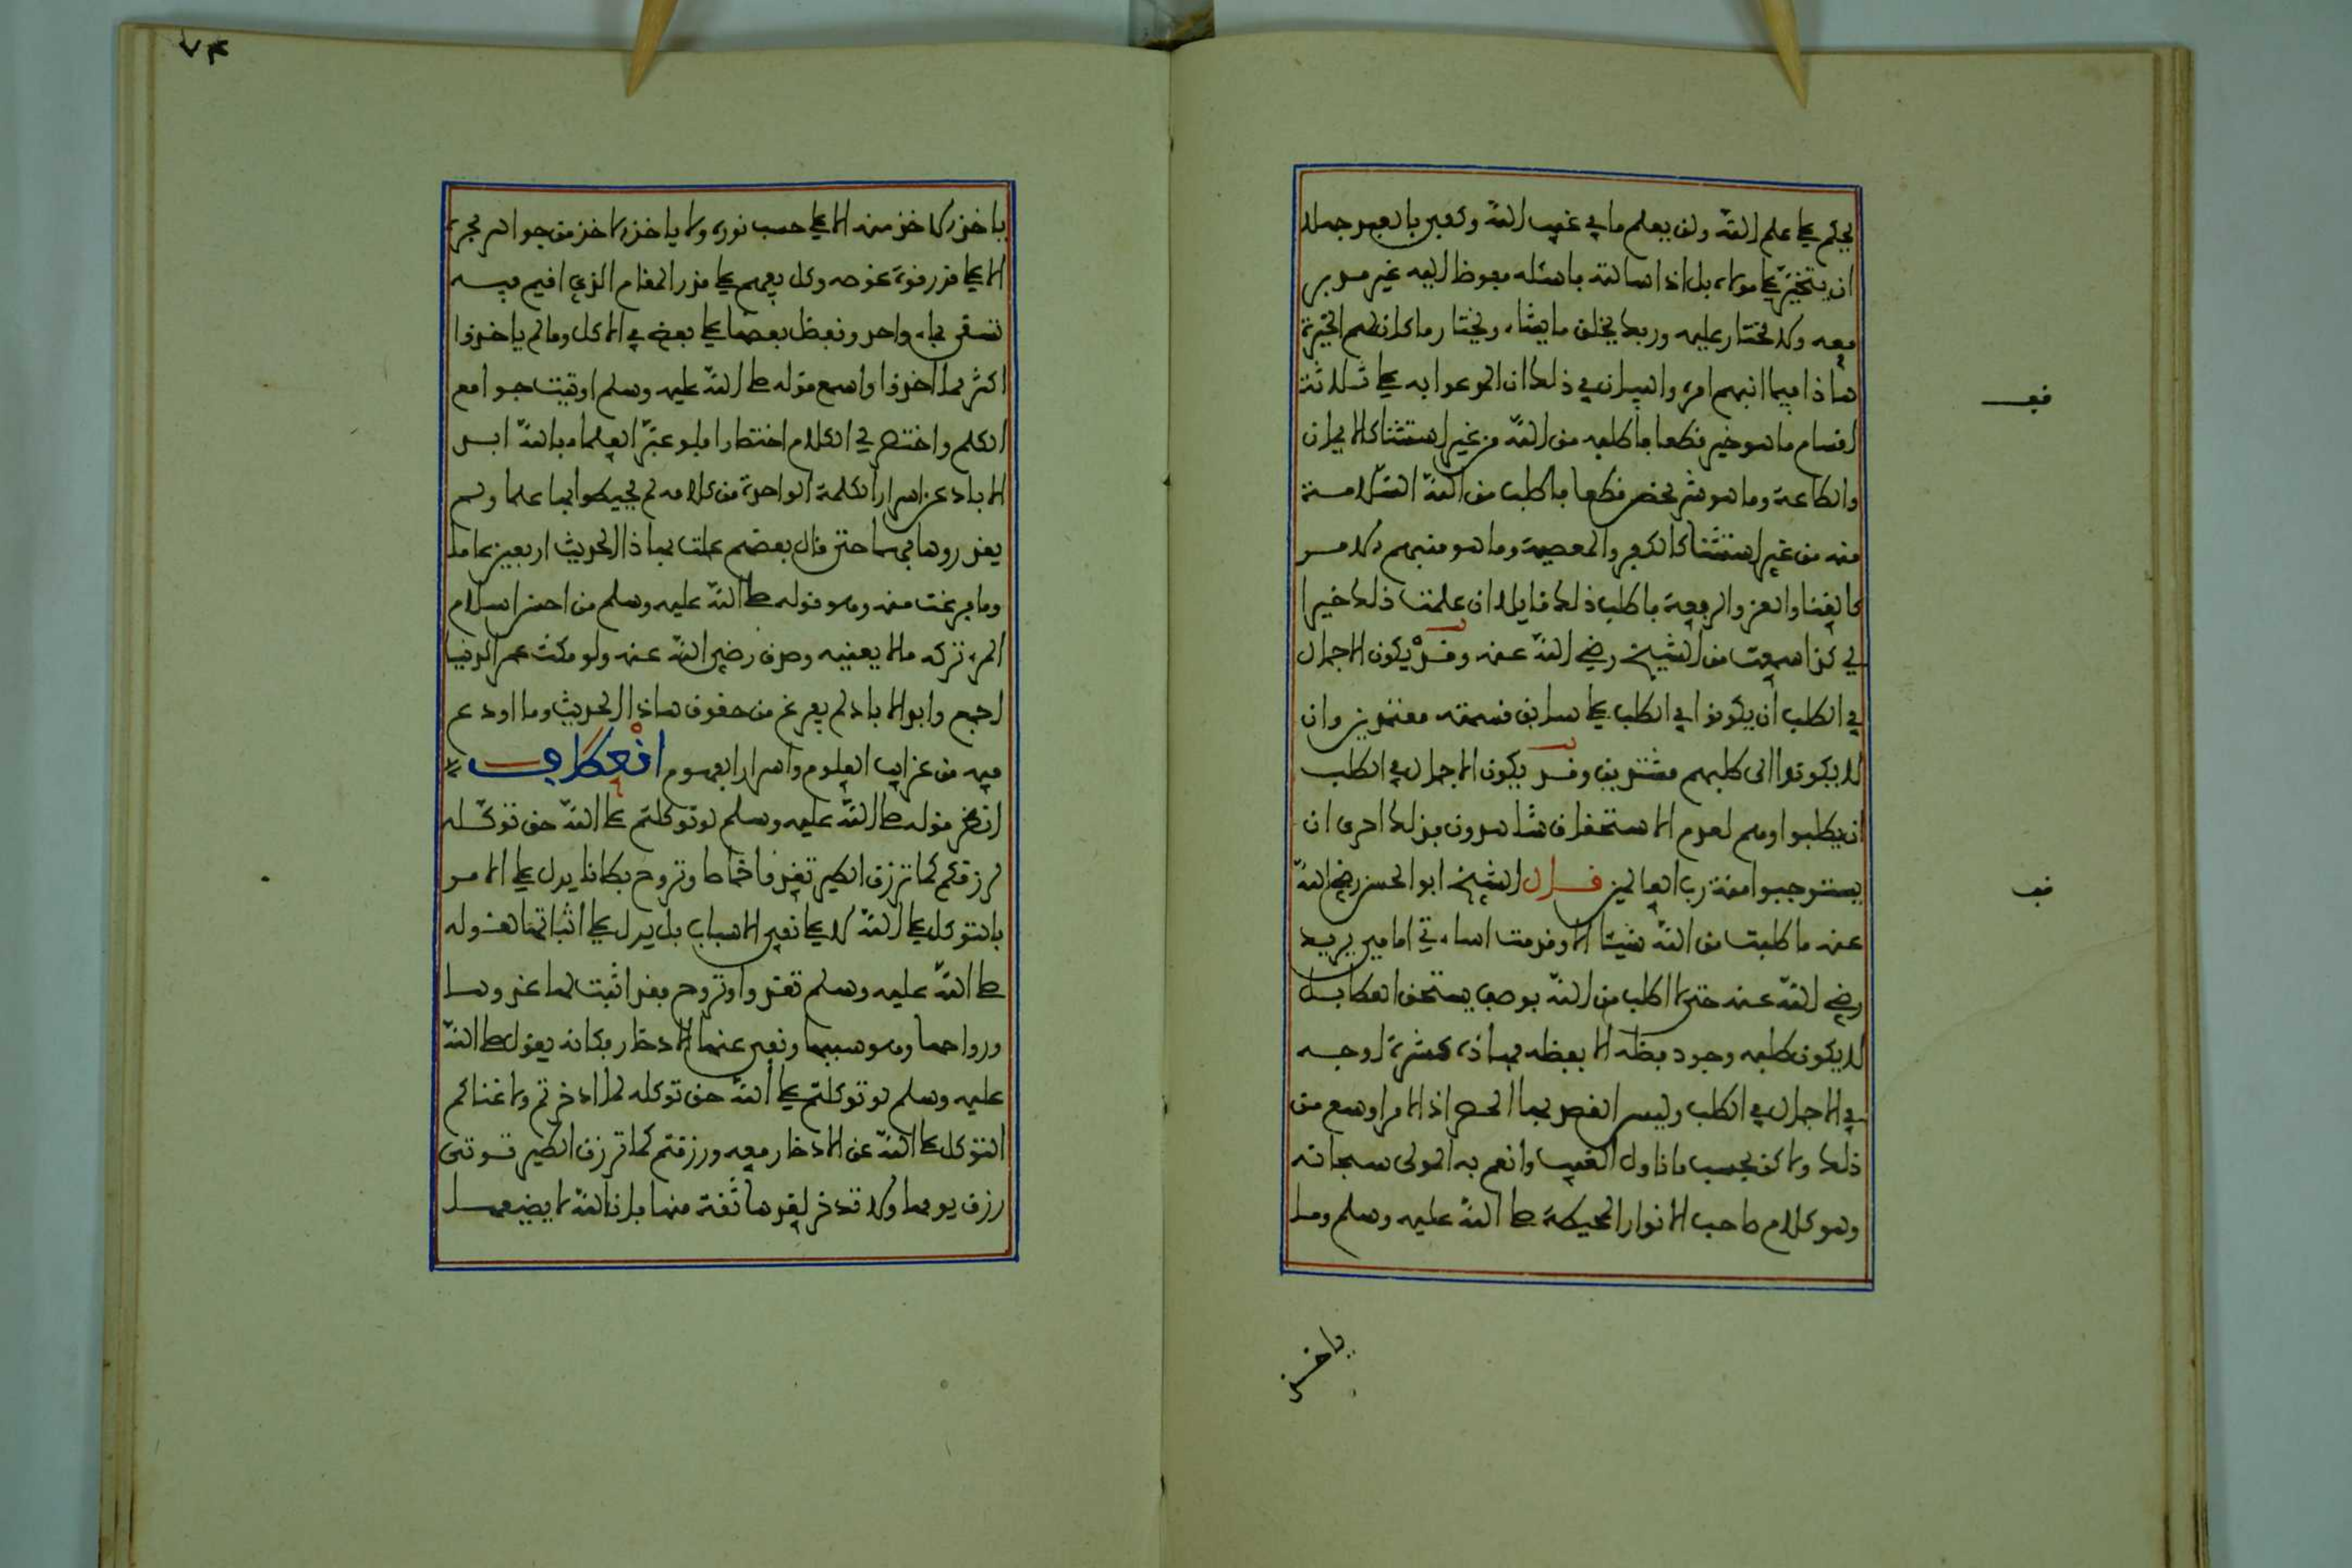 يحكم على علم الله ولن يعلم ما في غيب الله وكفى بالعبد جهلا
ان يتخير على مولاه بل اذا سالته فاسئله مفوضا اليه غير مدبر
معه ولا مختار عليه وربك يخلق ما يشاء ويختار ما كان لهم الخيرة
هاذا فيما انبهم امره والبيان في ذلك ان المدعو به على ثلاثة
اقسام ما هو خير قطعا فاطلبه من الله من غير استثنا كالايمان
والطاعة وما هو شر محض قطعا فاطلب من الله السلامة
منه من غير استثنا كالكفر والمعصية وما هو منبهم الامر
كالغنا والعز والرفعة فاطلب ذلك قايلا ان علمت ذلك خيرا
لي كذا سمعت من الشيخ رضي الله عنه وقد يكون الاجمال
في الطلب ان يكونوا في الطلب على سابق قسمته معتمدين وان
لا يكونوا الى طلبهم مستندين وقد يكون الاجمال في الطلب
ان يطلبوا وهم لعدم الاستحقاق شاهدون فبذلك احرى ان
يستوجبوا منة رب العالمين قال الشيخ ابو الحسن رضي الله
عنه ما طلبت من الله شيئا الا وقدمت اساءتي امامي يريد
رضي الله عنه حتى لا اطلب من الله بوصف يستحق العطا بل
لا يكون طلبه وجود فضله الا بفضله فهاذه عشرة اوجه
في الاجمال في الطلب وليس القصد بها الحصر اذ الامر اوسع من
ذلك ولاكن بحسب ما ناول الغيب وانعم به المولى سبحانه
وهو كلام صاحب الانوار المحيطة صلى الله عليه وسلم وما
ياخذ
قف
قف
٧٣
ياخذ الاخذ منه الا على حسب نوره ولا ياخذ الاخذ من جواهر بحره
الا على قدر قوة غوصه وكل يفهم على قدر المقام الذي اقيم فيه
تسقى بماء واحد ونفضل بعضها على بعض في الاكل وما لم ياخذوا
اكثر مما اخذوا واسمع قوله صلى الله عليه وسلم اوتيت جوامع
الكلم واختصر لي الكلام اختصارا فلو عبر العلماء بالله ابد
الاباد عن اسرار الكلمة الواحدة من كلامه لم يحيطوا بها علما ولم
يقدروها فهما حتى قال بعضهم عملت بهاذا الحديث اربعين عاما
وما فرغت منه وهو قوله صلى الله عليه وسلم من احسن اسلام
المرء تركه ما لا يعنيه وصدق رضي الله عنه ولو مكث عمر الدنيا
اجمع وابد الاباد لم يفرغ من حقوق هاذا الحديث وما اودع
فيه من غرايب العلوم واسرار الفهوم انعطاف
انظر قوله صلى الله عليه وسلم لو توكلتم على الله حق توكله
لرزقكم كما ترزق الطير تغدو خماصا وتروح بطانا يدل على الامر
بالتوكل على الله لا على نفي الاسباب بل يدل على اثباتها لقوله
صلى الله عليه وسلم تغدوا وتروح فقد اثبت لها غدوها
ورواحها وهو سببها ونفى عنها الادخار فكانه يقول صلى الله
عليه وسلم لو توكلتم على الله حق توكله لما ادخرتم ولاغناكم
التوكل على الله عن الادخار معه ورزقتم كما ترزق الطير قوتى
رزق يومها ولا تدخر لغدها ثقة منها بان الله لا يضيعها